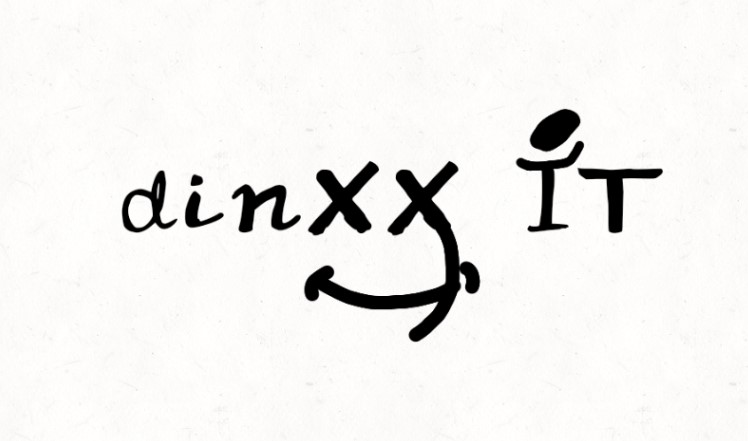 dinxx IT